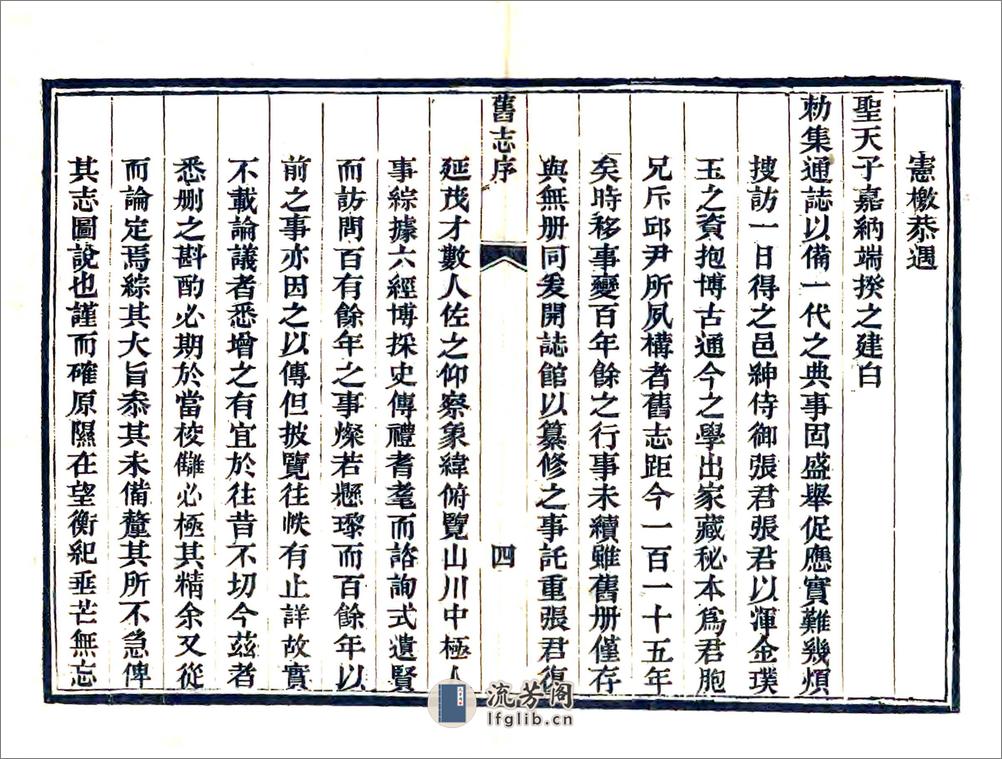 憲檄恭遇
聖天子嘉納端揆之建白
勅集通誌以備一代之典事固盛舉促應實難幾煩
搜訪一日得之邑紳侍御張君張君以渾金璞
玉之資抱博古通今之學出家藏秘本為君胞
兄斥邱尹所夙構者舊志距今一百一十五年
矣時移事變百年餘之行事未續雖舊册僅存
與無册同爰開誌館以纂修之事託重張君復
舊志序
四
延茂才數人佐之仰察象緯俯覽山川中極人
事綜據六經博採史傳禮耆耄而諮詢式遺賢
而訪問百有餘年之事燦若懸瓈而百餘年以
前之事亦因之以傳但披覽往帙有止詳故實
不載論議者悉增之有宜於往昔不切今茲者
悉删之斟酌必期於當校讎必極其精余又從
而論定焉綜其大旨叅其未備釐其所不急俾
其志圖說也謹而確原隰在望衡紀垂芒無忘
流芳阁
lfglib.cn